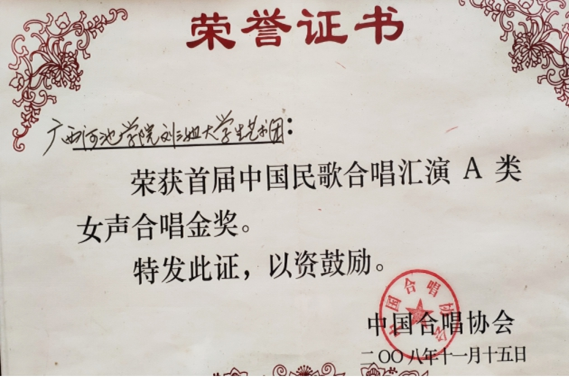 荣誉证书
广西河池学院刘三姐大学生艺术团：
荣获首届中国民歌合唱汇演 A 类
女声合唱金奖。
特发此证，以资鼓励。
中国合唱协会
中国合唱协会
二〇〇八年十一月十五日